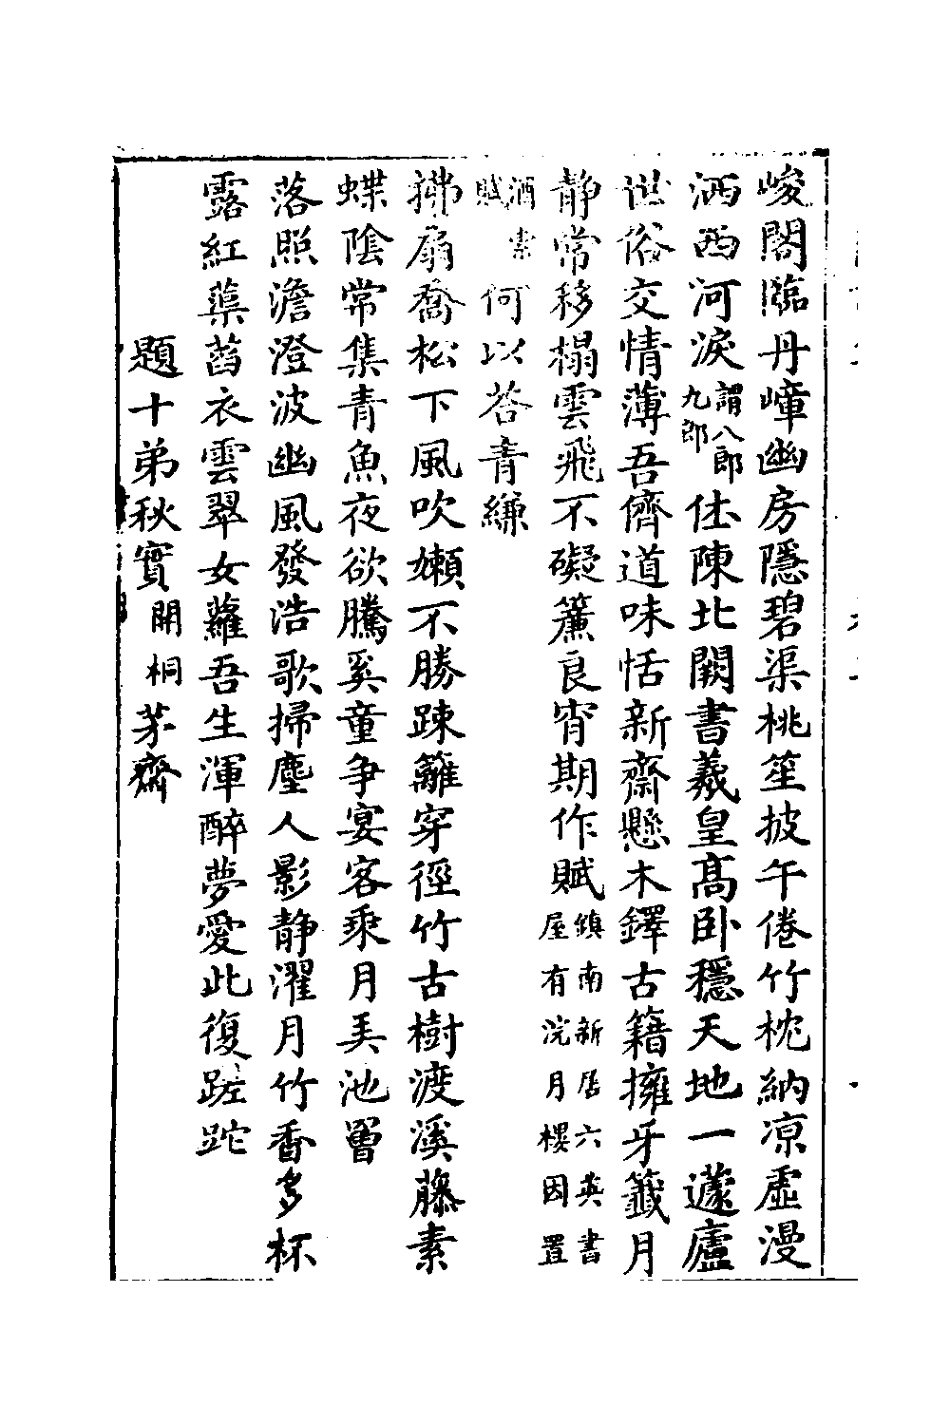 峻閣臨丹嶂幽房隱碧渠桃笙披午倦竹枕納凉虛漫
洒西河淚謂八郎九郎仕陳北闕書羲皇高卧穩天地一蘧廬
世俗交情薄吾儕道味恬新齋懸木鐸古籍擁牙籤月
静常移榻雲飛不礙簾良宵期作賦鎮南新居六英書屋有浣月樓因置
酒索賦何以答青縑
拂扇喬松下風吹嬾不勝踈籬穿徑竹古樹渡溪藤素
蝶陰常集青魚夜欲騰奚童争宴客乘月弄池罾
落照澹澄波幽風發浩歌掃塵人影静濯月竹香多杯
露紅蕖萏衣雲翠女蘿吾生渾醉夢愛此復蹉跎
題十弟秋實開桐茅齋